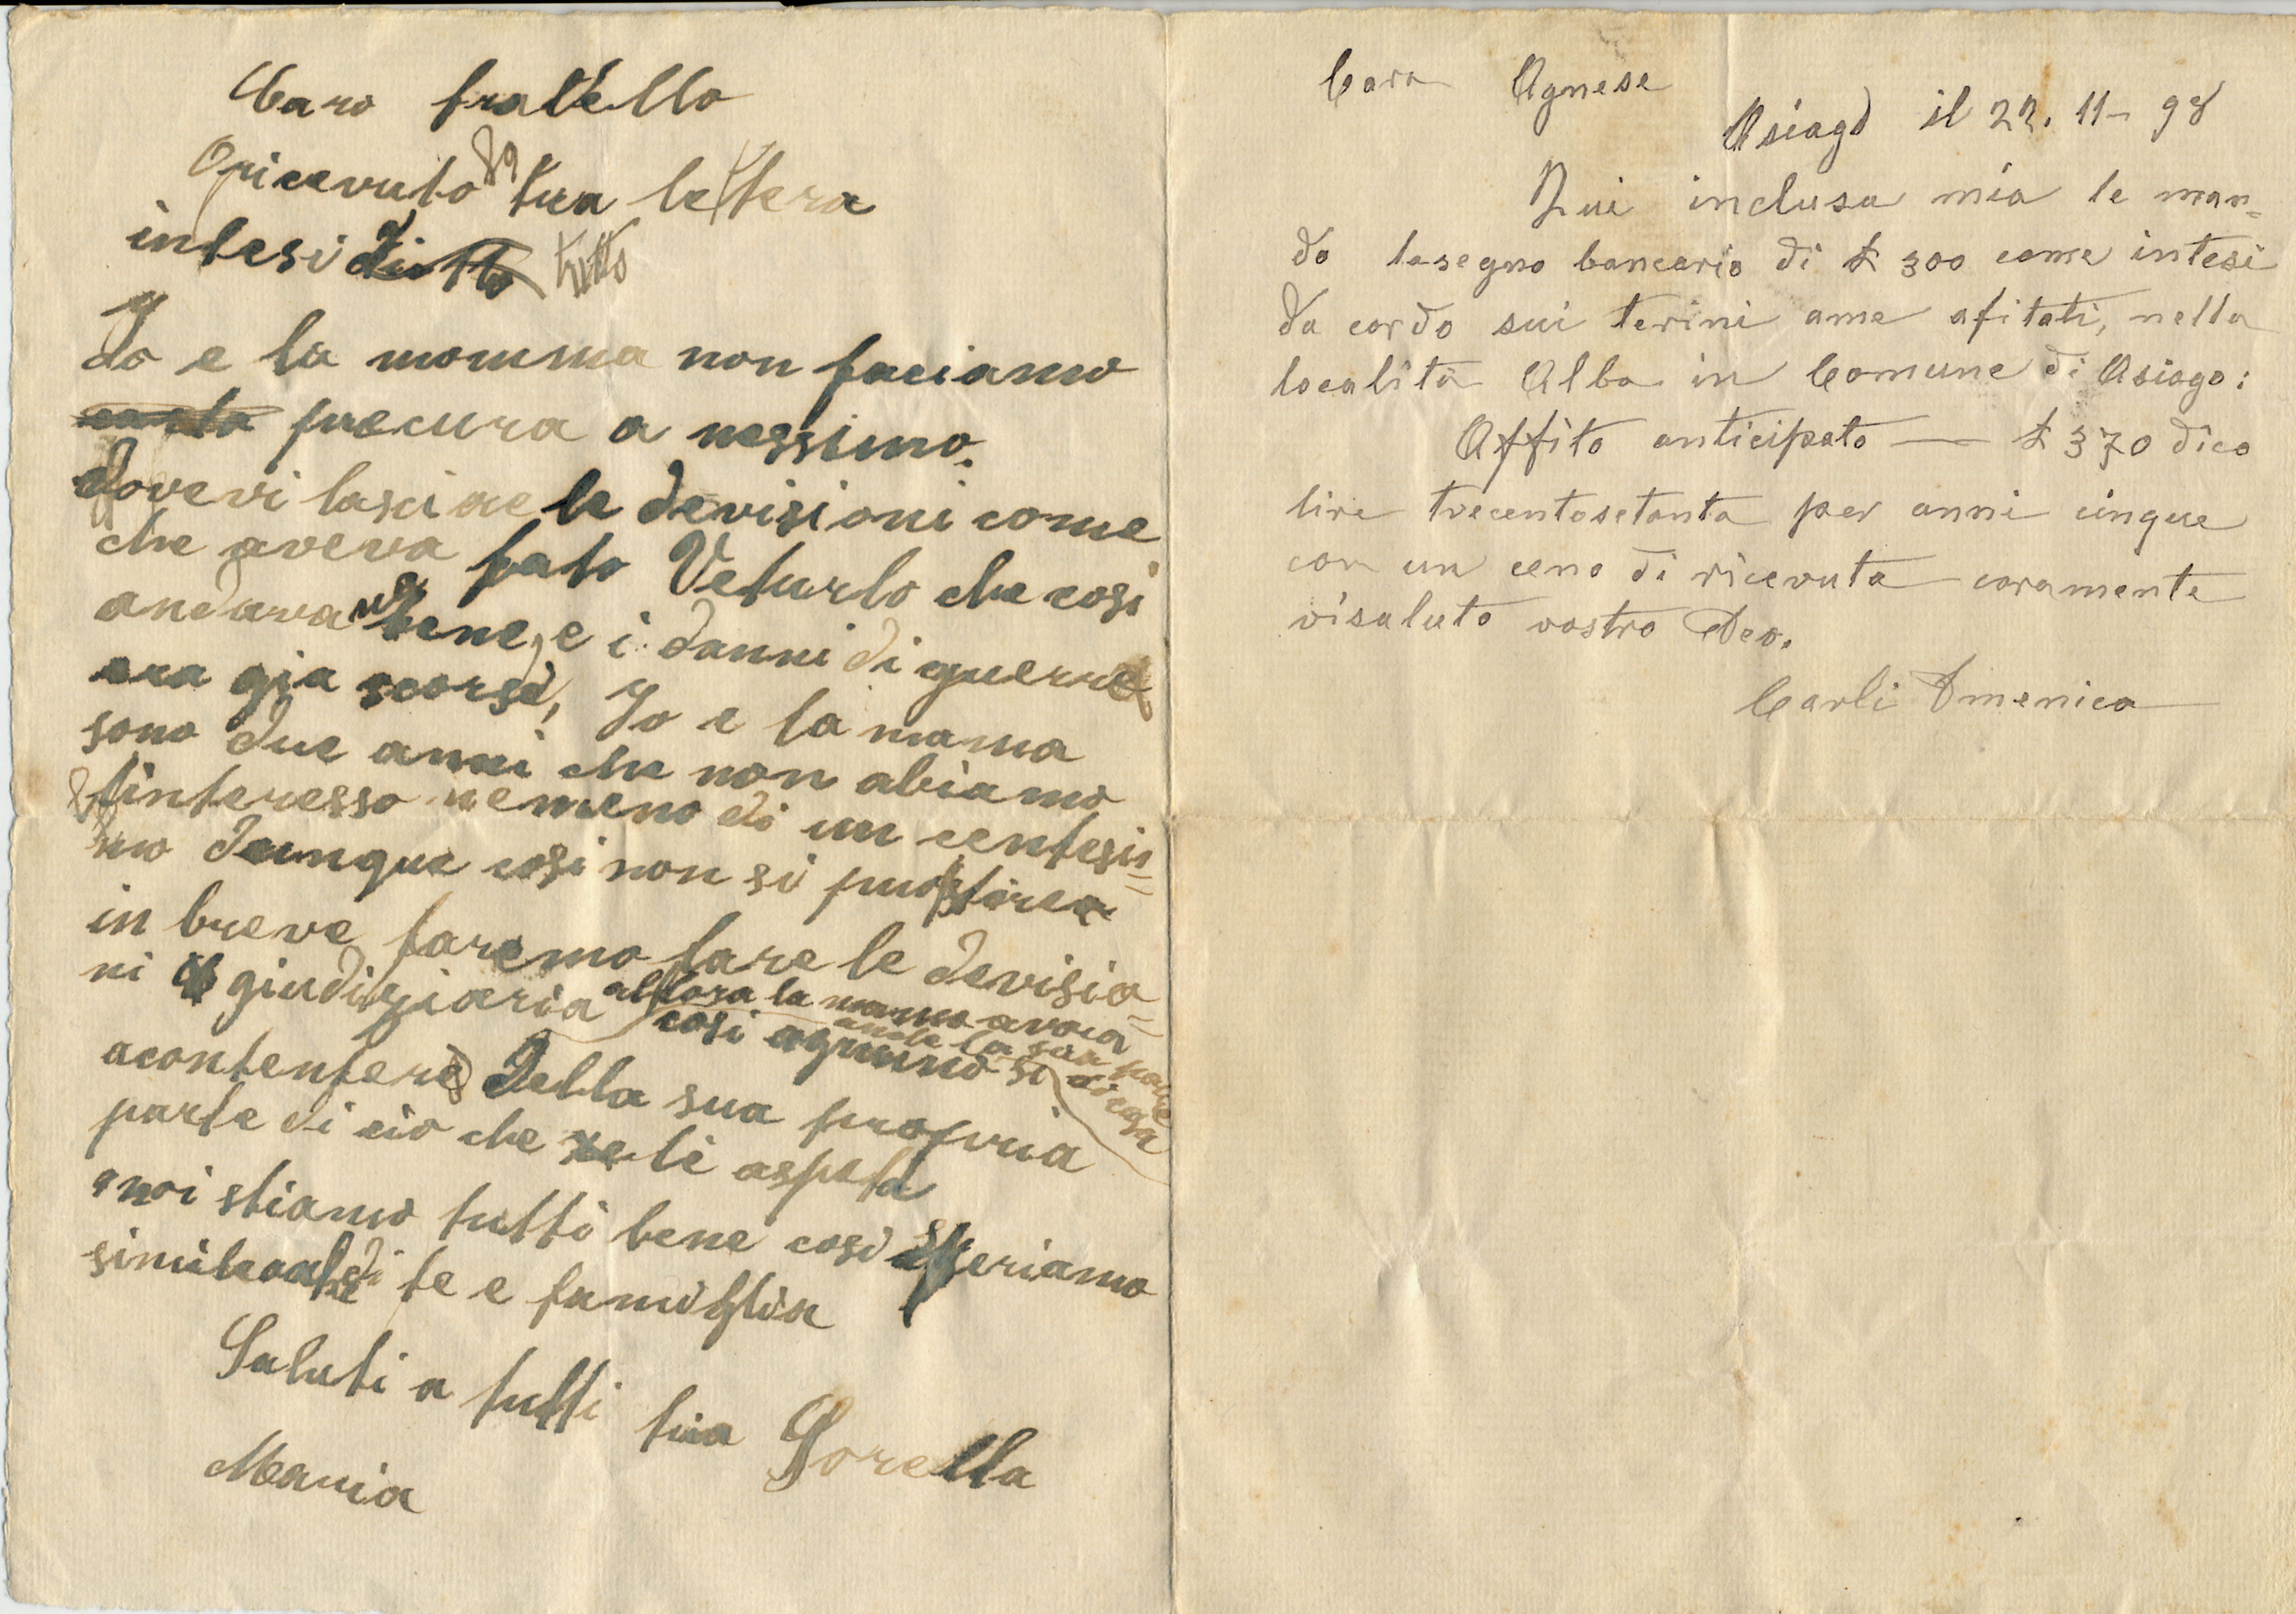 Caro fratello
O ricevuto la tua lettera
intesi tutto
Io e la momma non faciamo
procura a nessuno.
dovevi lasciae le devisioni come
che aveva fato Veturlo che cosi
andava bene, e i danni di guerra
era gia scorsi, Io e la mama
sono due anni che non abiamo
l'interesso nemeno di un centesi=
mo dunque cosi non si puo
in breve faremo fare le devisio=
ni giudiziaria allora la mama avra
anche la sua parte
di casa
cosi ognuno si
acontentera della sua propria
parte di cio che le aspeta
noi stiamo tutti bene cosi speriamo
simile di te e famiglia
Saluti a tutti tua Sorella
Maria
Cara Agnese
Asiago il 22. 11- 98
Qui inclusa mia le man=
do lasegno bancario di £ 300 come intesi
da cordo sui terini ame afitati, nella
località Alba in Comune di Asiago:
Affito anticipato — £ 370 dico
lire trecentosetanta per anni cinque
con un ceno di ricevuta caramente
visaluto vostro Deo.
Carli Dmenico